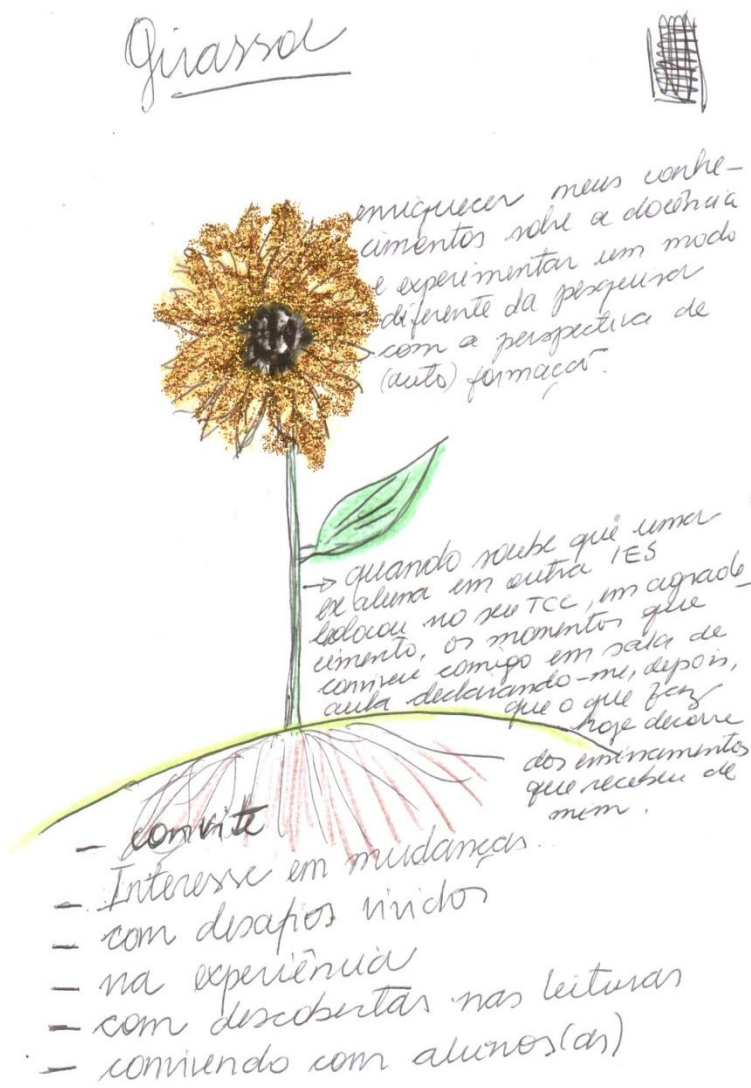 Girassol
enriquecer meus conhe-
cimentos sobre a docência
e experimentar um modo
diferente da pesquisa
com a perspectiva de
(auto) formação.
→ quando soube que uma
ex aluna em outra IES
colocou no seu TCC, em agrade-
cimento, os momentos que
conviveu comigo em sala de
aula declarando-me, depois,
que o que faz
hoje decorre
dos ensinamentos
que recebeu de
mim.
- convite
- Interesse em mudanças
- com desafios vividos
- na experiência
- com descobertas nas leituras
- convivendo com alunos(as)